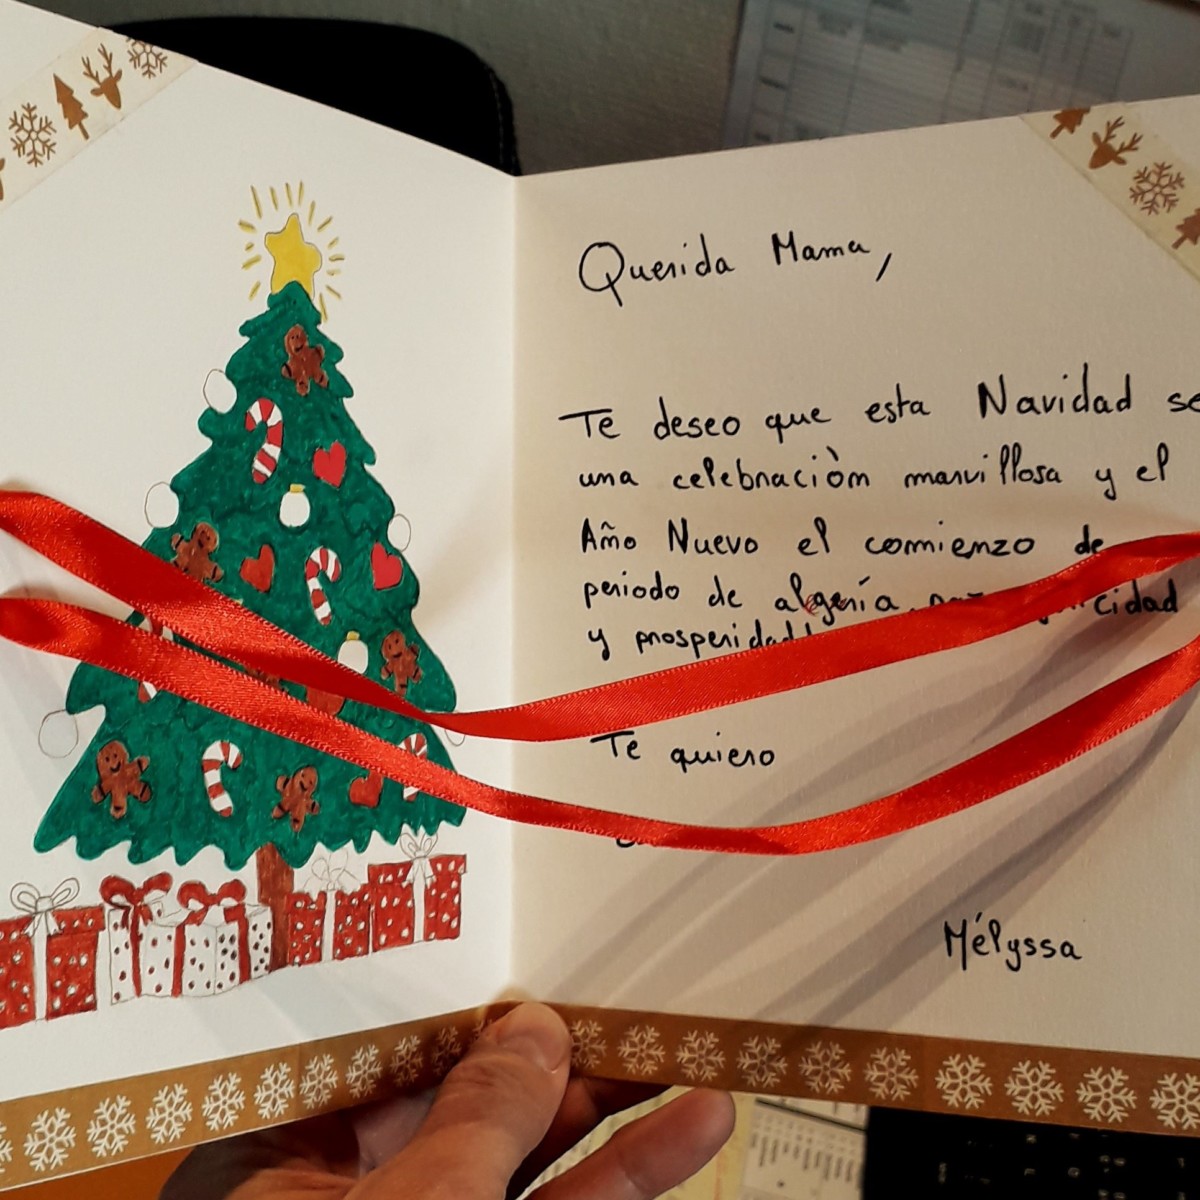 Querida Mama,
Te deseo que esta Navidad se
una celebraciòn marvillosa y el
Año Nuevo el comienzo de
periodo de algería
y prosperidad!
Te quiero
Mélyssa